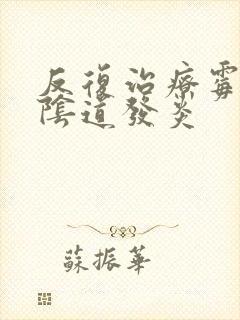 反復治療霉
陰道發炎
蘇振華